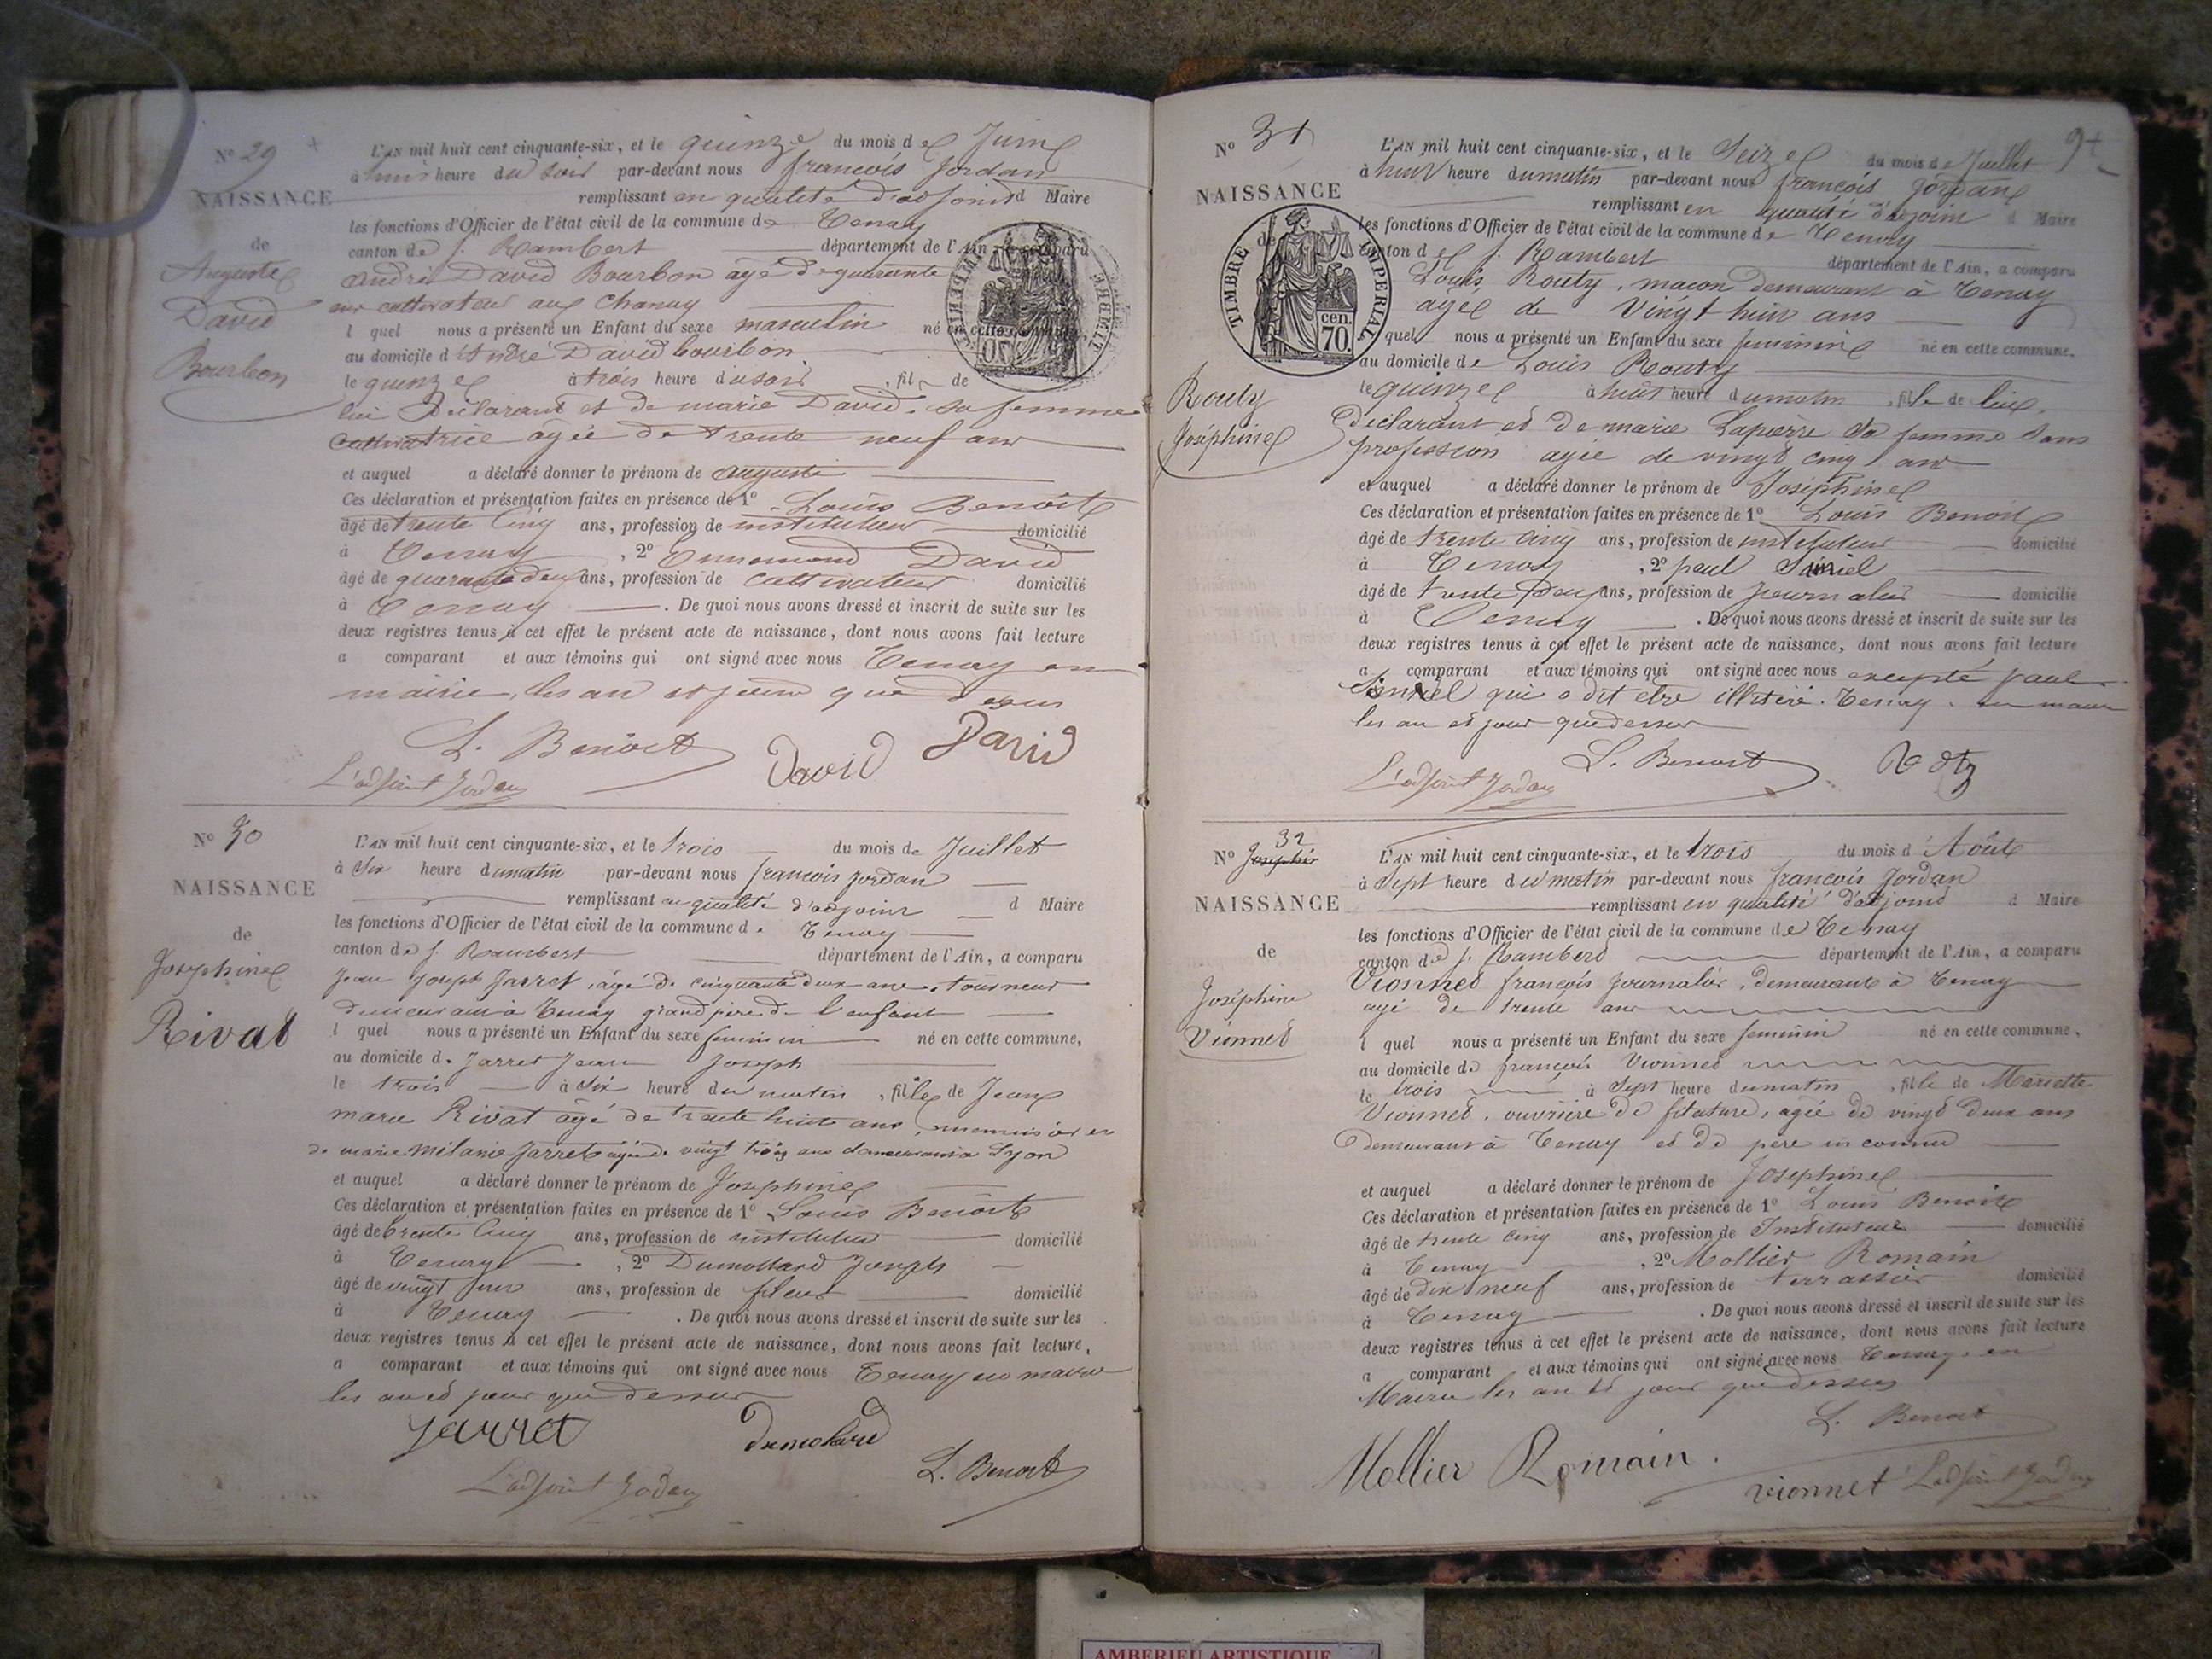 N° 29
NAISSANCE
de
Auguste
David
Bourbon
L'AN mil huit cent cinquante-six, et le quinze du mois de Juin
à huit heure du soir par-devant nous françois Jordan
remplissant en qualité d'adjoint d Maire
les fonctions d'Officier de l'état civil de la commune de Tenay
canton de S. Rambert département de l'Ain, a comparu
André David Bourbon agé de quarante
cultivateur aux Chanay
l quel nous a présenté un Enfant du sexe masculin né en cette commune,
au domicile d'André David bourbon
le quinze à trois heure du soir, fil de
lui Déclarant et de marie David. sa femme
cultivatrice agée de trente neuf ans
et auquel a déclaré donner le prénom de auguste
Ces déclaration et présentation faites en présence de 1° Louis Benoit
âgé de trente cinq ans, profession de instituteur domicilié
à Tenay, 2° Ennemond David
âgé de quarante deux ans, profession de cultivateur domicilié
à Tenay. De quoi nous avons dressé et inscrit de suite sur les
deux registres tenus à cet effet le présent acte de naissance, dont nous avons fait lecture
a comparant et aux témoins qui ont signé avec nous Tenay en
mairie, les an et jour que dessus
L. Benoit David David
L'adjoint Jordan
N° 30
NAISSANCE
de
Josephine
Rivat
L'AN mil huit cent cinquante-six, et le trois du mois de Juillet
à six heure du matin par-devant nous françois jordan
remplissant en qualité d'adjoint d Maire
les fonctions d'Officier de l'état civil de la commune d. Tenay
canton de S. Rambert département de l'Ain, a comparu
Jean Joseph Jarret, âgé de cinquante deux ans, tourneur
demeurant à Tenay grand père de l'enfant
l quel nous a présenté un Enfant du sexe feminin né en cette commune,
au domicile d. Jarret Jean Joseph
le trois à six heure du matin, fille de Jean
marie Rivat âgé de trente huit ans, menuisier et
de marie Mélanie Jarret agée de vingt trois ans demeurant à Lyon
et auquel a déclaré donner le prénom de Josephine
Ces déclaration et présentation faites en présence de 1° Louis Benoit
âgé de trente cinq ans, profession de instituteur domicilié
à Tenay, 2° Dumollard Joseph
âgé de vingt ans, profession de fileur domicilié
à Tenay. De quoi nous avons dressé et inscrit de suite sur les
deux registres tenus à cet effet le présent acte de naissance, dont nous avons fait lecture,
a comparant et aux témoins qui ont signé avec nous Tenay en mairie
les an et jour que dessus
Jarret Dumolard
L'adjoint Jordan L. Benoit
N° 31
NAISSANCE
de
TIMBRE IMPERIAL
70 cen.
Routy
Joséphine
L'AN mil huit cent cinquante-six, et le Seize du mois de Juillet
à huit heure du matin par-devant nous françois Jordan
remplissant en qualité d'adjoint d Maire
les fonctions d'Officier de l'état civil de la commune de Tenay
canton de S. Rambert département de l'Ain, a comparu
Louis Routy, macon demeurant à Tenay
agé de Vingt huit ans
quel nous a présenté un Enfant du sexe feminin né en cette commune.
au domicile de Louis Routy
le quinze à huit heure du matin, fille de lui
déclarant et de marie Lapierre sa femme sans
profession agée de vingt cinq ans
et auquel a déclaré donner le prénom de Joséphine
Ces déclaration et présentation faites en présence de 1° Louis Benoit
âgé de trente cinq ans, profession de instituteur domicilié
à Tenay, 2° paul
âgé de trente deux ans, profession de journalier domicilié
à Tenay. De quoi nous avons dressé et inscrit de suite sur les
deux registres tenus à cet effet le présent acte de naissance, dont nous avons fait lecture
a comparant et aux témoins qui ont signé avec nous excepté paul
qui a dit etre illitéré. Tenay. en mairie
les an et jour que dessus
L. Benoit
L'adjoint Jordan
N° 32
NAISSANCE
de
Joséphine
Vionnet
L'AN mil huit cent cinquante-six, et le trois du mois d'Août
à Sept heure du matin par-devant nous françois Jordan
remplissant en qualité d'adjoint d Maire
les fonctions d'Officier de l'état civil de la commune de Tenay
canton de S. Rambert département de l'Ain, a comparu
Vionnet françois journalier, demeurant à Tenay
agé de trente ans
l quel nous a présenté un Enfant du sexe feminin né en cette commune,
au domicile de françois Vionnet
le trois à Sept heure du matin, fille de Mariette
Vionnet. ouvrière de filature, agée de vingt deux ans
demeurant à Tenay et de père inconnu
et auquel a déclaré donner le prénom de Josephine
Ces déclaration et présentation faites en présence de 1° Louis Benoit
âgé de trente cinq ans, profession de Instituteur domicilié
à Tenay, 2° Mollier Romain
âgé de dix neuf ans, profession de terrassier domicilié
à Tenay. De quoi nous avons dressé et inscrit de suite sur les
deux registres tenus à cet effet le présent acte de naissance, dont nous avons fait lecture
a comparant et aux témoins qui ont signé avec nous Tenay. en
Mairie les an et jour que dessus
L. Benoit
Mollier Romain.
vionnet L'adjoint Jordan
AMBERIEU ARTISTIQUE